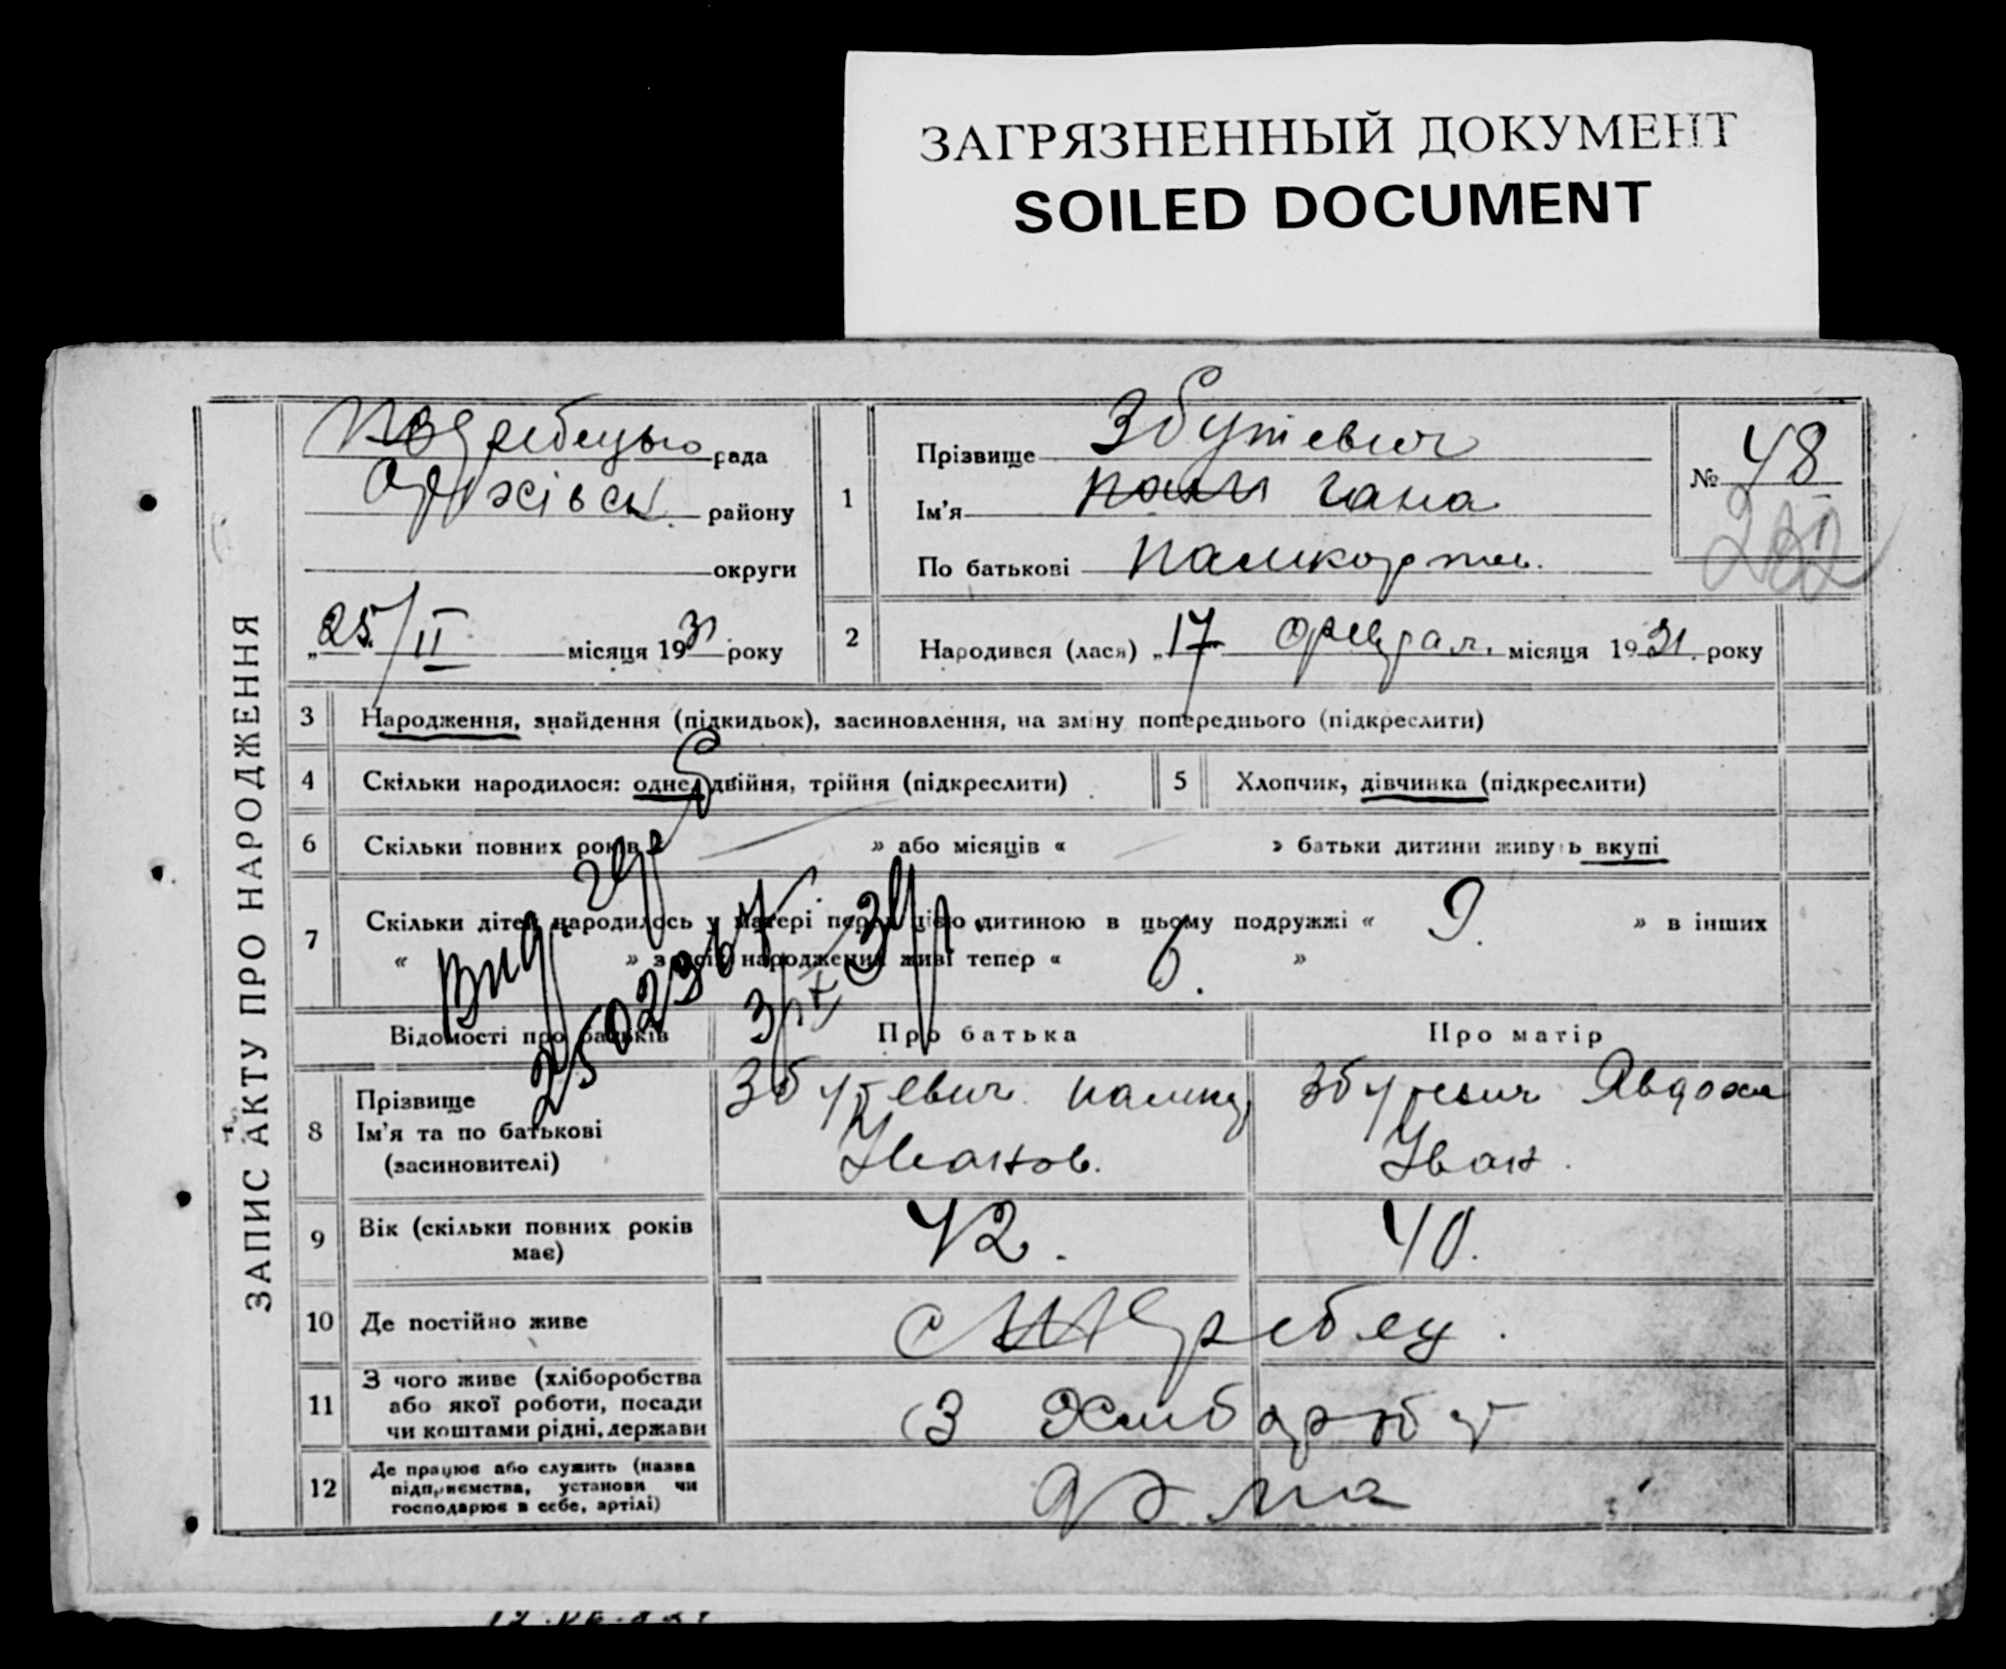 ЗАГРЯЗНЕННЫЙ ДОКУМЕНТ
SOILED DOCUMENT
ЗАПИС АКТУ ПРО НАРОДЖЕННЯ
рада
району
округи
„25/II місяця 1931 року
1
Прізвище Збутевич
Ім'я гана
По батькові
№ 48
2
Народився (лася) „17 місяця 1931 року
3 Народження, знайдення (підкидьок), засиновлення, на зміну попереднього (підкреслити)
4 Скільки народилося: одне, двійня, трійня (підкреслити)
5 Хлопчик, дівчинка (підкреслити)
6 Скільки повних років » або місяців « » батьки дитини живуть вкупі
7 Скільки дітей народилось у матері перед цією дитиною в цьому подружжі « 9. » в інших
« » з усіх народжених живі тепер « 6. »
Відомості про батьків Про батька Про матір
8 Прізвище
Ім'я та по батькові
(засиновителі)
Збутевич
Іванов.
Збутевич Явдоха
Іван.
9 Вік (скільки повних років
має)
42. 40.
10 Де постійно живе
11 З чого живе (хліборобства
або якої роботи, посади
чи коштами рідні, держави
З
12 Де працює або служить (назва
підприємства, установи чи
господарює в себе, артілі)
дома